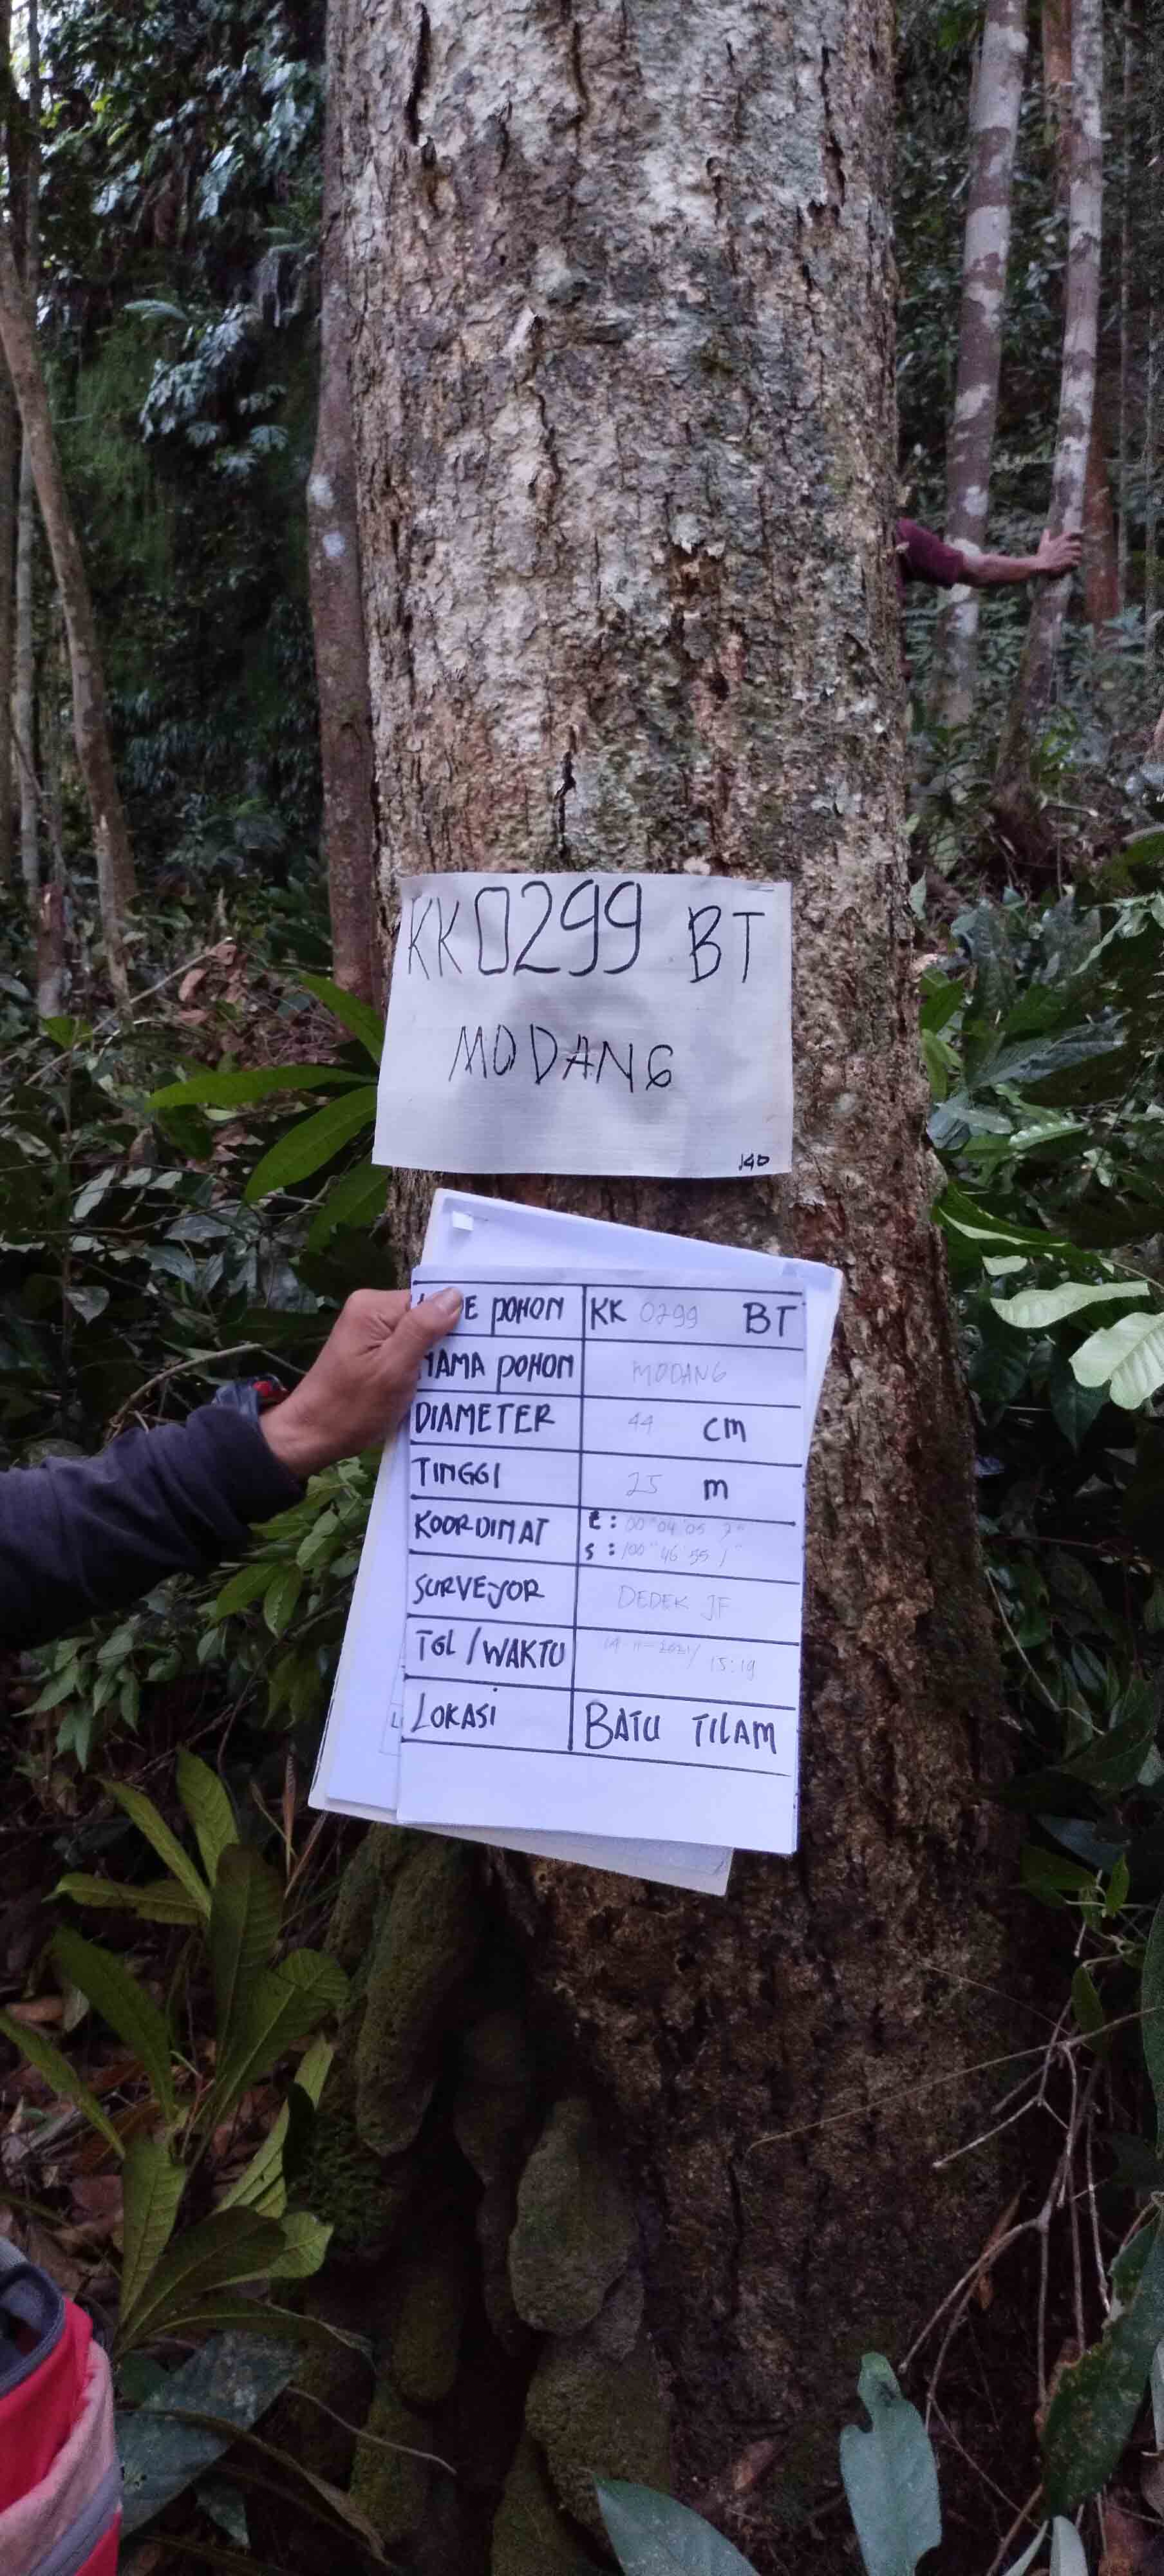 KK0299 BT
MODANG
140
KODE POHON KK 0299 BT
NAMA POHON MODANG
DIAMETER 44 cm
TINGGI 25 m
KOORDINAT E : 00°04'05
S : 100°46'55
SURVEYOR DEDEK JF
TGL/WAKTU 15:19
LOKASI BATU TILAM